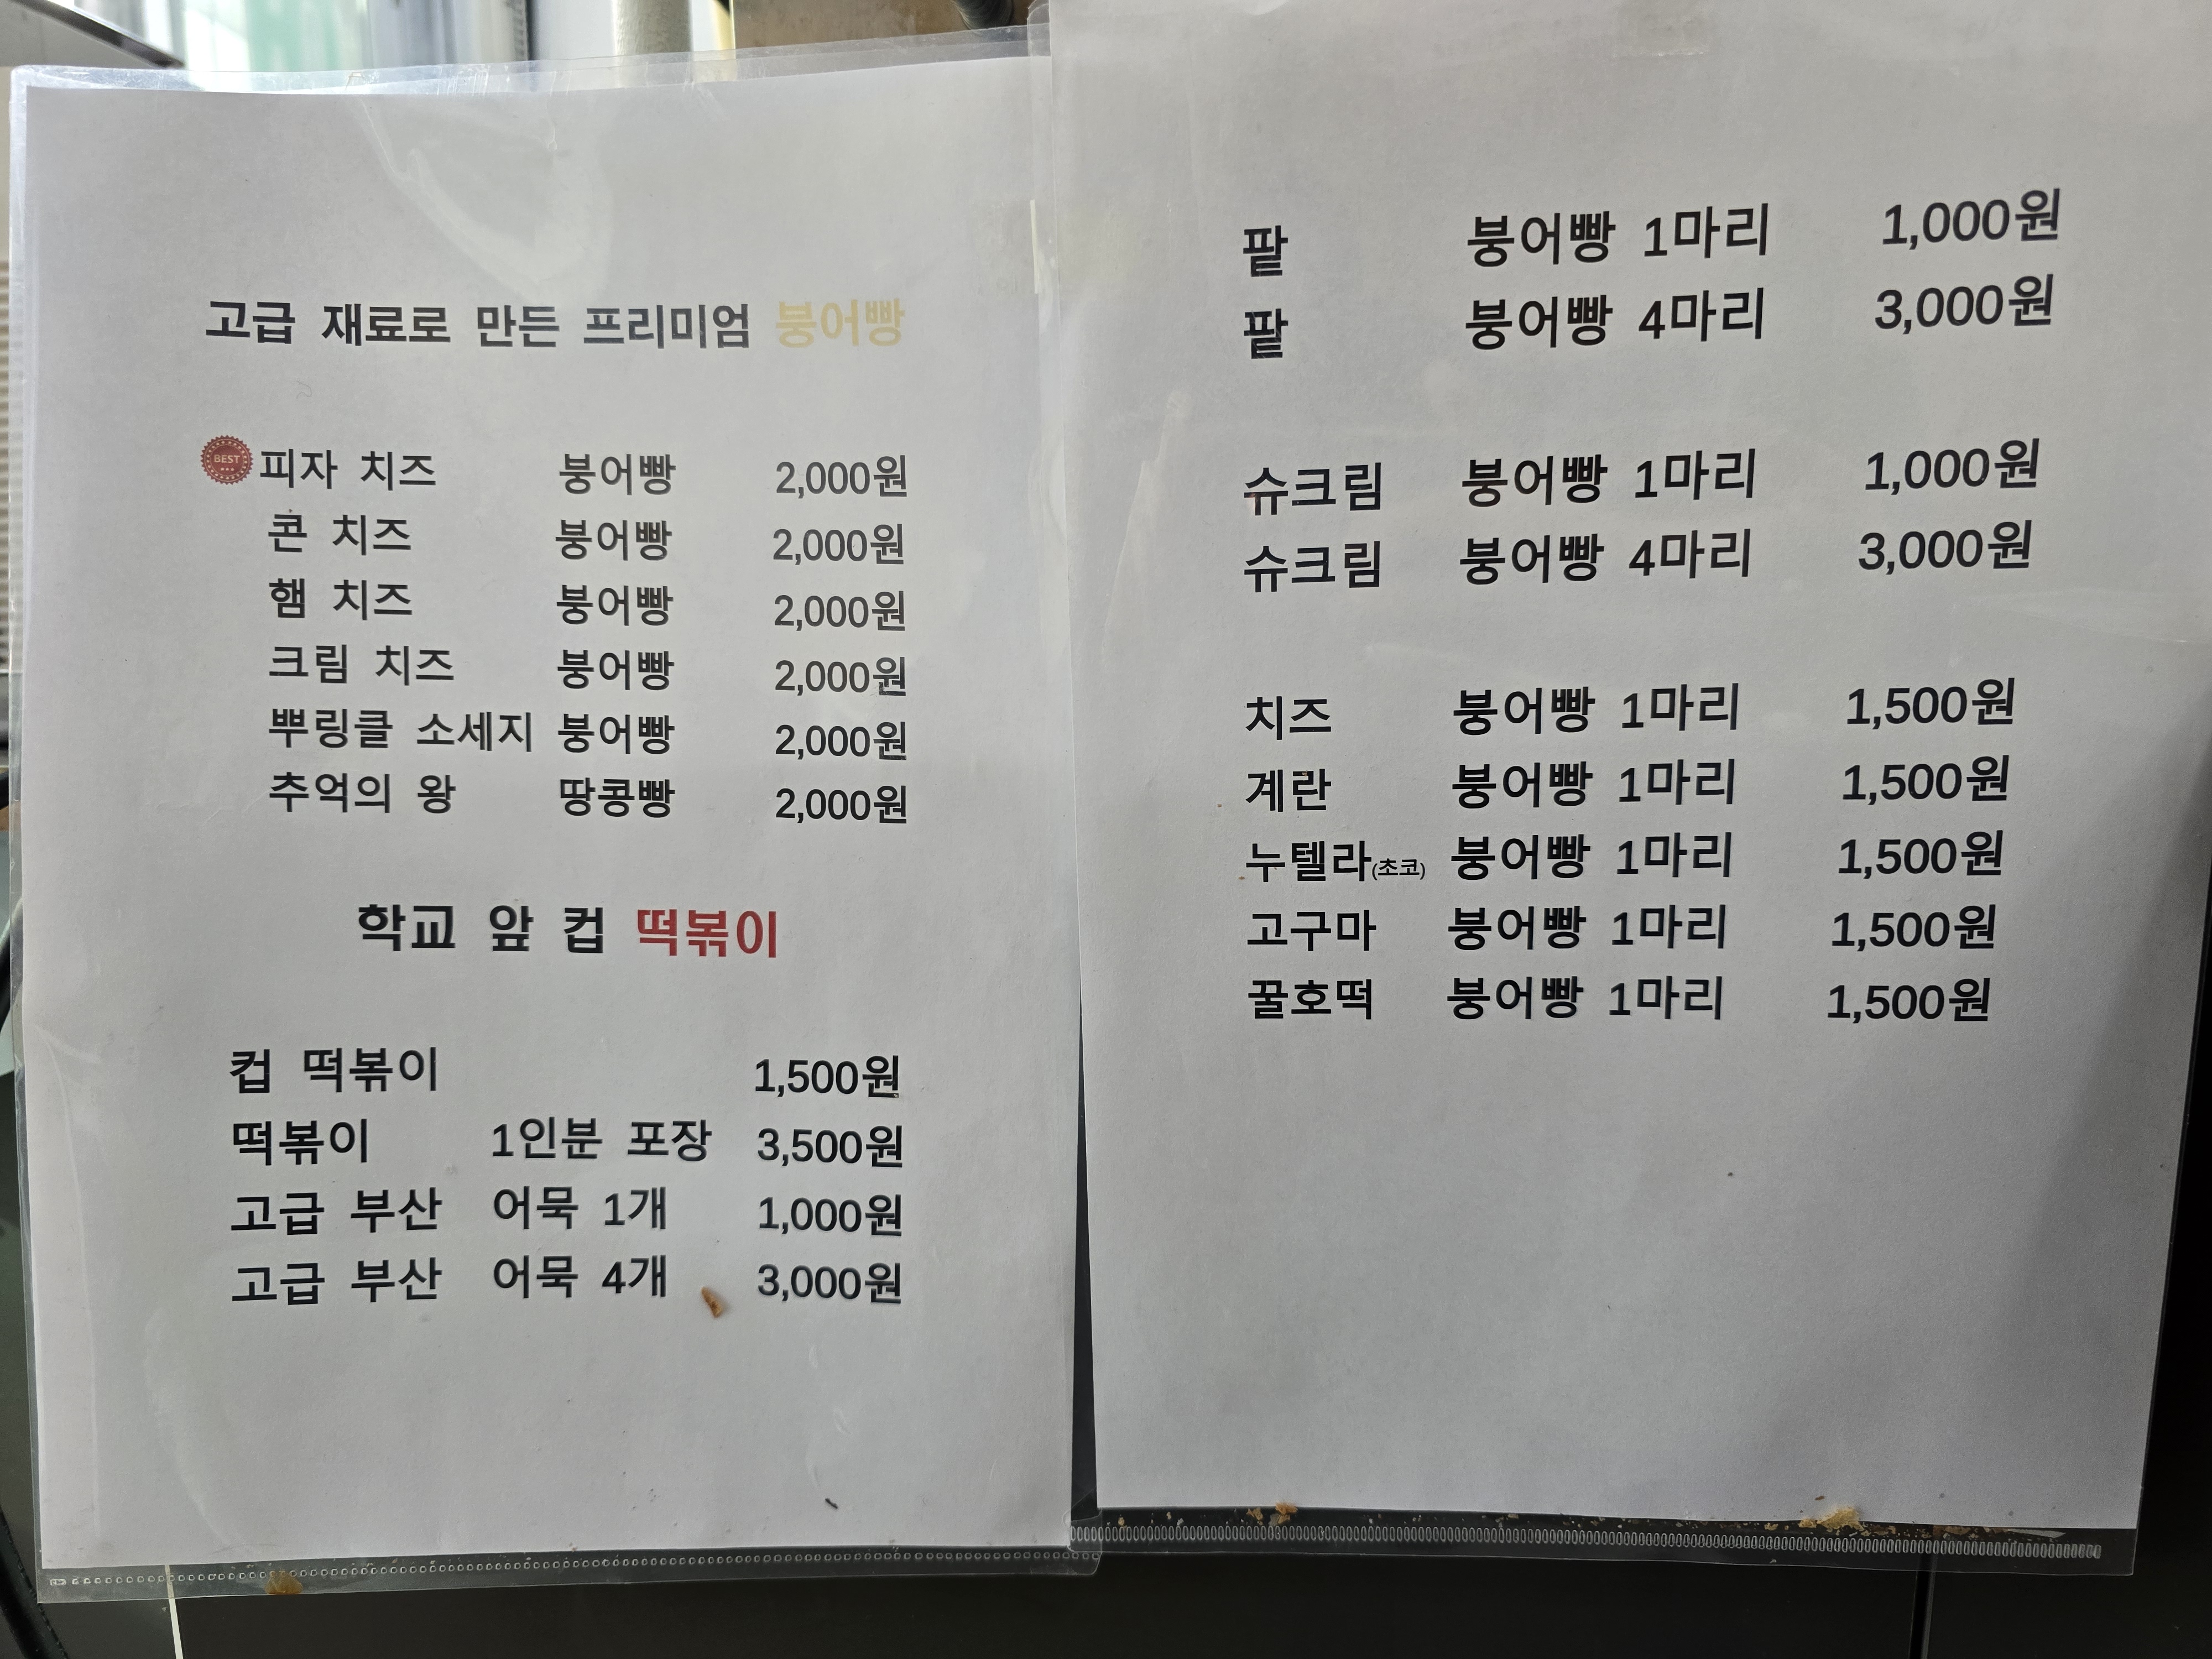 고급 재료로 만든 프리미엄 붕어빵
BEST 피자 치즈 붕어빵 2,000원
콘 치즈 붕어빵 2,000원
햄 치즈 붕어빵 2,000원
크림 치즈 붕어빵 2,000원
뿌링클 소세지 붕어빵 2,000원
추억의 왕 땅콩빵 2,000원
학교 앞 컵 떡볶이
컵 떡볶이 1,500원
떡볶이 1인분 포장 3,500원
고급 부산 어묵 1개 1,000원
고급 부산 어묵 4개 3,000원
팥 붕어빵 1마리 1,000원
팥 붕어빵 4마리 3,000원
슈크림 붕어빵 1마리 1,000원
슈크림 붕어빵 4마리 3,000원
치즈 붕어빵 1마리 1,500원
계란 붕어빵 1마리 1,500원
누텔라(초코) 붕어빵 1마리 1,500원
고구마 붕어빵 1마리 1,500원
꿀호떡 붕어빵 1마리 1,500원